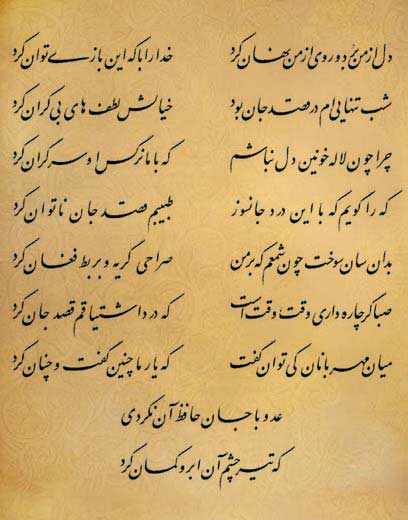 دل از من برد و روی از من نهان کرد خدا را با که این بازی توان کرد
شب تنهایی ام در قصد جان بود خیالش لطف های بی کران کرد
چرا چون لاله خونین دل نباشم که با ما نرگس او سرگران کرد
که را گویم که با این درد جانسوز طبیبم قصد جان ناتوان کرد
بدان سان سوخت چون شمعم که بر من صراحی گریه و بربط فغان کرد
صبا گر چاره داری وقت وقت است که درد اشتیاقم قصد جان کرد
میان مهربانان کی توان گفت که یار ما چنین گفت و چنان کرد
عدو با جان حافظ آن نکردی
که تیر چشم آن ابرو کمان کرد